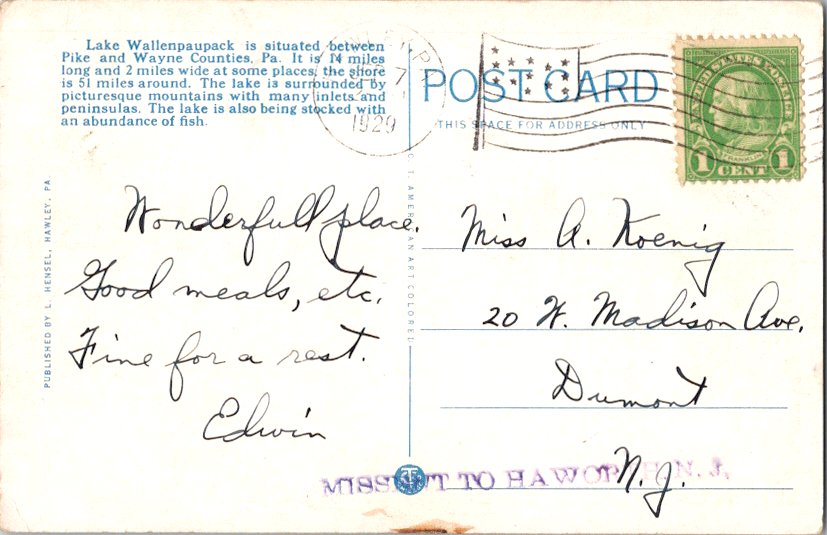 Lake Wallenpaupack is situated between
Pike and Wayne Counties, Pa. It is 14 miles
long and 2 miles wide at some places, the shore
is 51 miles around. The lake is surrounded by
picturesque mountains with many inlets and
peninsulas. The lake is also being stocked with
an abundance of fish.
7
1929
POST CARD
THIS SPACE FOR ADDRESS ONLY
UNITED STATES POSTAGE
FRANKLIN
1 CENT 1
PUBLISHED BY L. HENSEL, HAWLEY, PA
C. T. AMERICAN ART COLORED
Wonderfull place.
Good meals, etc.
Fine for a rest.
Edwin
Miss A. Koenig
20 W. Madison Ave.
Dumont
N.J.
MISSENT TO HAWORTH, N. J.